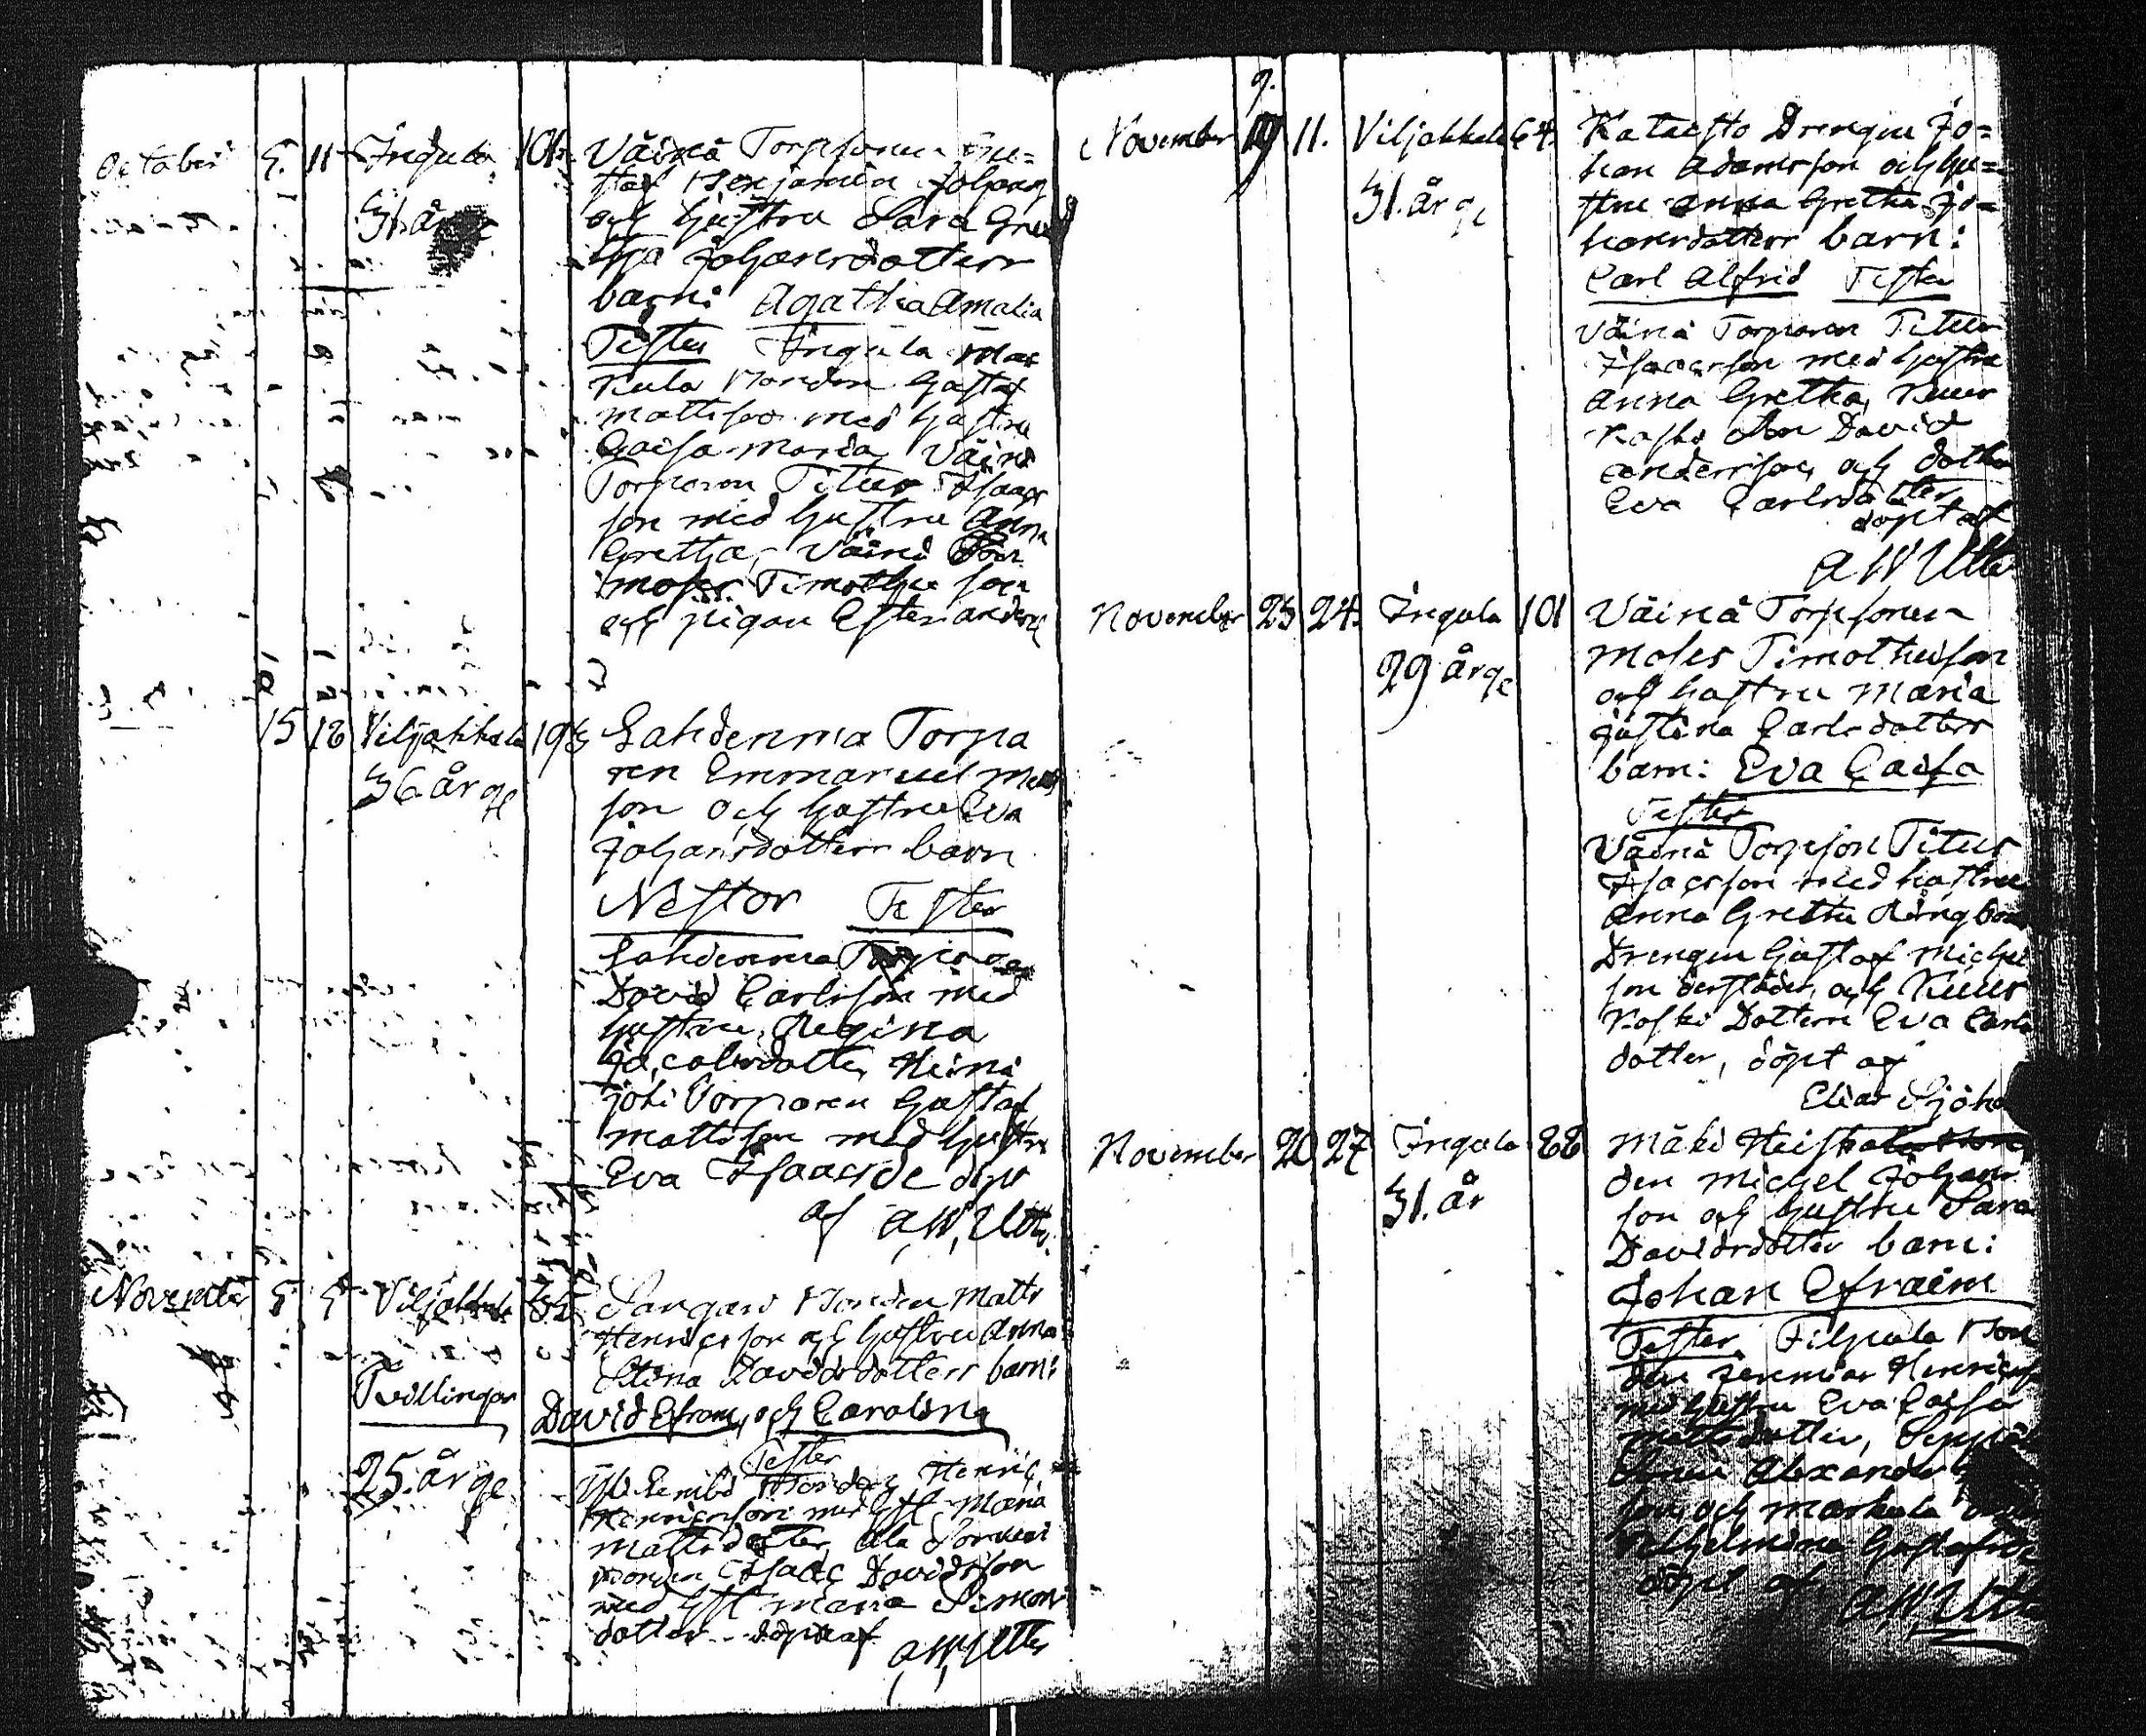 October 5. 11 Ingula 101.
31. år
Väinä Torpsonen Gu=
staf Benjamin Johans
och hustru Sara Gre
tha Johansdotters
barn: Agatha Amalia
Tester Ingula Mar
kula Bonden Gustaf
Mattsson med hustru
Caisa Maria, Väinä
Torparen Titus Isaacs
son med hustru Anna
Gretha, Väinä
Moses Timothei son
och pigan Ester Anders
15 18 Viljakkala 198
36 år ge
Lahdenma Torpa
ren Emmanuel Matts
son och hustru Eva
Johansdotters barn
Nestor Tester
Lahdenma Torparen
David Carlsson med
hustru, Regina
Jacobsdotter, Heina
joki Torparen Gustaf
Mattsson med hustru
Eva Isaacsd döpt
af A, W, Utter
November 5 5 Viljakkala
Tvillingar
25. år ge
Bonden Matts
Henricsson och hustru Anna
Stina Davidsdotters barn:
David Efraim, och Carolina
Tester
Bonden Henric
Henricsson med hst Maria
Mattsdotter, Ala
Bonden Isaac Davidsson
med hst Maria Simons
dotter döpt af
A, W, Utter
9.
November 11. Viljakkala 64.
31. år ge
Kataisto Drengen Jo=
han Adamsson och hu=
strus Anna Gretha Jo=
hansdotters barn:
Carl Alfrid Tester
Väinä Torparen Titus
Isaacsson med hustru
Anna Gretha, Kuus
koski David
Andersson, och dottren
Eva Carlsdotter
döpt af
A W Utter
November 23 24. Ingula 101
29 år ge
Väinä Torpsonen
Moses Timotheison
och hustru Maria
Justina Carlsdotters
barn: Eva Caisa
Tester
Väinä Torpson Titus
Isacsson med hustru
Anna Gretha Ringbom
Drengen Gustaf Michel
son derstädes, och Kuus
koski Dottern Eva Carls
dotter, döpt af
Elias Sjöho
November 20 27 Ingula 88
31. år
Mäki Heiskala Bon
den Michel Johans
son och hustru Sara
Davidsdotter barn:
Johan Efraim
Tester, Filpula Bon
den Jeremias Henrics
med hustru Eva Caisa
Mattsdotter,
Alexander
son, och Markula
Vilhelmina Gustafsd
döpt af
A, W, Utter